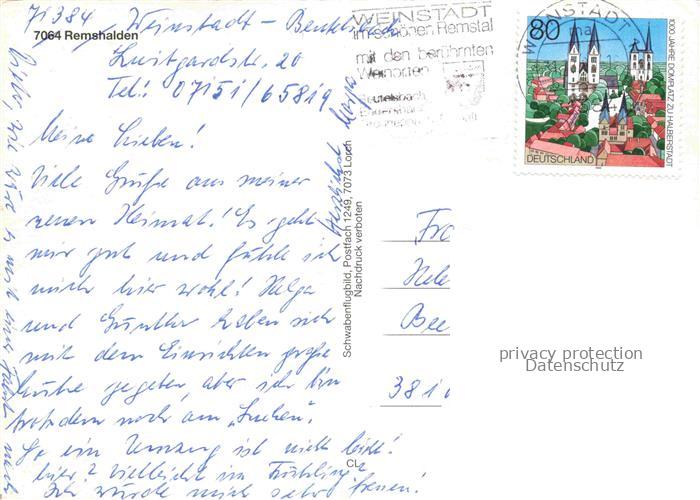 7064 Remshalden
71384 Weinstadt - Beutelsbach
Luitgardstr. 20
Tel: 07151/65819
Meine Lieben!
Viele Grüße aus meiner
neuen Heimat! Es geht
mir gut und fühle ich
mich hier wohl! Helga
und Günther haben sich
mit dem Einrichten große
Mühe gegeben aber ich bin
trotzdem noch am "Suchen".
So ein Umzug ist nicht leicht!
hier? Vielleicht im Frühling?
Ich würde mich sehr freuen!
Herzlichst
Schwabenflugbild, Postfach 1249, 7073 Lorch
Nachdruck verboten
CL
WEINSTADT
im schönen Remstal
mit den berühmten
Weinorten
Beutelsbach
WEINSTADT
80
1000 JAHRE DOMPLATZ ZU HALBERSTADT
DEUTSCHLAND
Fra
Hele
Bee
381
privacy protection
Datenschutz